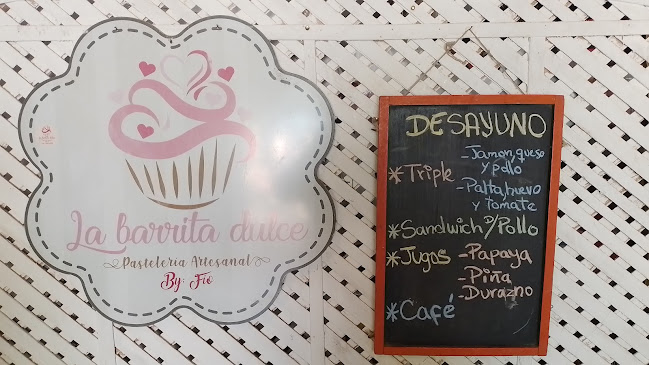 La barrita dulce
Pastelería Artesanal
By: Fio
DESAYUNO
*Triple -Jamon, queso
y pollo
-Palta, huevo
y tomate
*Sandwich D/Pollo
*Jugos -Papaya
-Piña
-Durazno
*Café